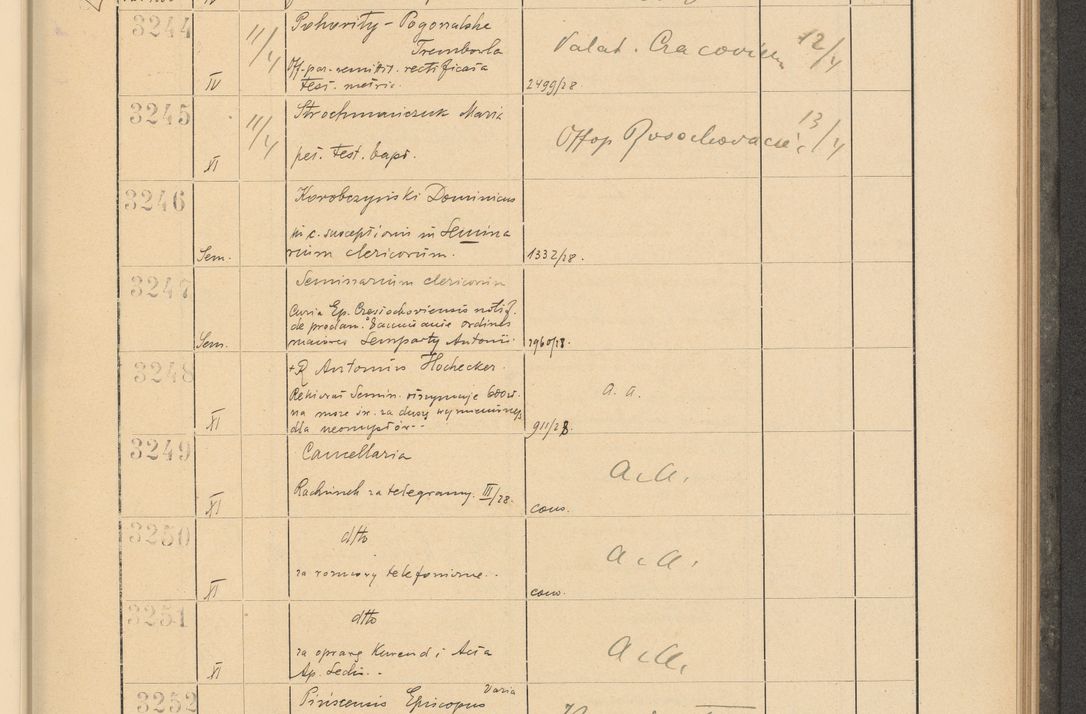 3244 IV 11/4 Pohority - Pogonalska
Trembowla
Off. par. remittit rectificata
test. metric.
2499/28
Valat. Cracoviam 12/4
3245 XI 11/4 Strochmańczuk Maria
pet. test. bapt.
Offop Rosochovaciec 13/4
3246 Sem. Korobczyński Dominicus
in c. susceptionis in Semina
rium clericorum.
1332/28.
3247 Sem. Seminarium clericorum
Curia Ep. Częstochoviensis notif.
ordines
maiores Antonii.
1960/28.
3248 XI +R Antonius Hochecker.
Rektorat Semin. otrzymuje 600 zł.
na msze św. za duszę wymienionego
dla neomystów --
911/28.
a. a.
3249 XI Cancellaria
Rachunek za telegramy. III/28.
conv.
a. a.
3250 XI dtto
za rozmowy telefoniczne. -
conv.
a. a.
3251 XI dtto
za oprawę Kurend i Acta
Ap. Sedis. -
a. a.
3252 Pińscensis Episcopus
Varia